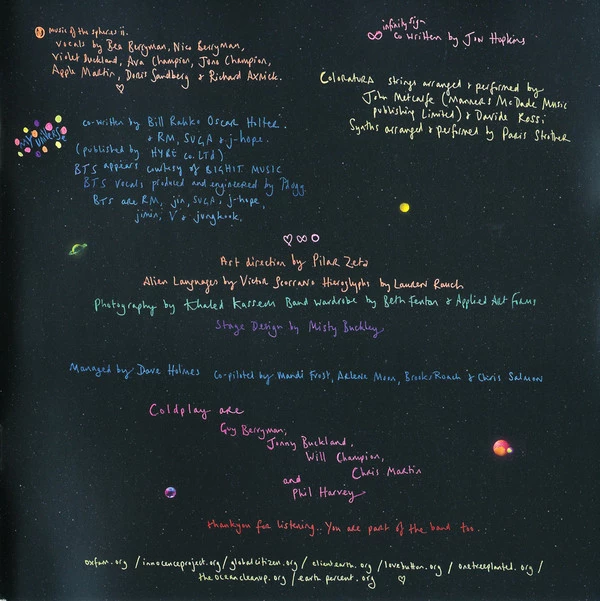 music of the spheres ii.
vocals by Bea Berryman, Nico Berryman,
Violet Buckland, Ava Champion, Jono Champion,
Apple Martin, Doris Sandberg & Richard Axnick.
♡
∞ infinity sign
co written by Jon Hopkins
Coloratura strings arranged & performed by
John Metcalfe (Manners McDade Music
publishing Limited) & Davide Rossi
Synths arranged & performed by Paris Strother
my universe
co-written by Bill Rahko Oscar Holter.
& RM, SUGA & j-hope.
(published by HYBE co. LTd)
BTS appears courtesy of BIGHIT MUSIC
BTS vocals produced and engineered by Pdogg.
BTS are RM, jin, SUGA, j-hope,
jimin, V & jungkook.
♡∞O
Art direction by Pilar Zeta
Alien Languages by Victor Scorrano Hieroglyphs by Lauren Rauch
Photography by Khaled Kassem Band wardrobe by Beth Fenton & Applied Art Forms
Stage Design by Misty Buckley
Managed by Dave Holmes Co-piloted by Mandi Frost, Arlene Moon, Brooks Roach & Chris Salmon
Coldplay are
Guy Berryman,
Jonny Buckland,
Will Champion,
Chris Martin
and
Phil Harvey
thankyou for listening.. You are part of the band too..
oxfam.org / innocenceproject.org / globalcitizen.org / clientearth.org / lovebutton.org / onetreeplanted.org /
theoceancleanup.org / earthpercent.org ♡